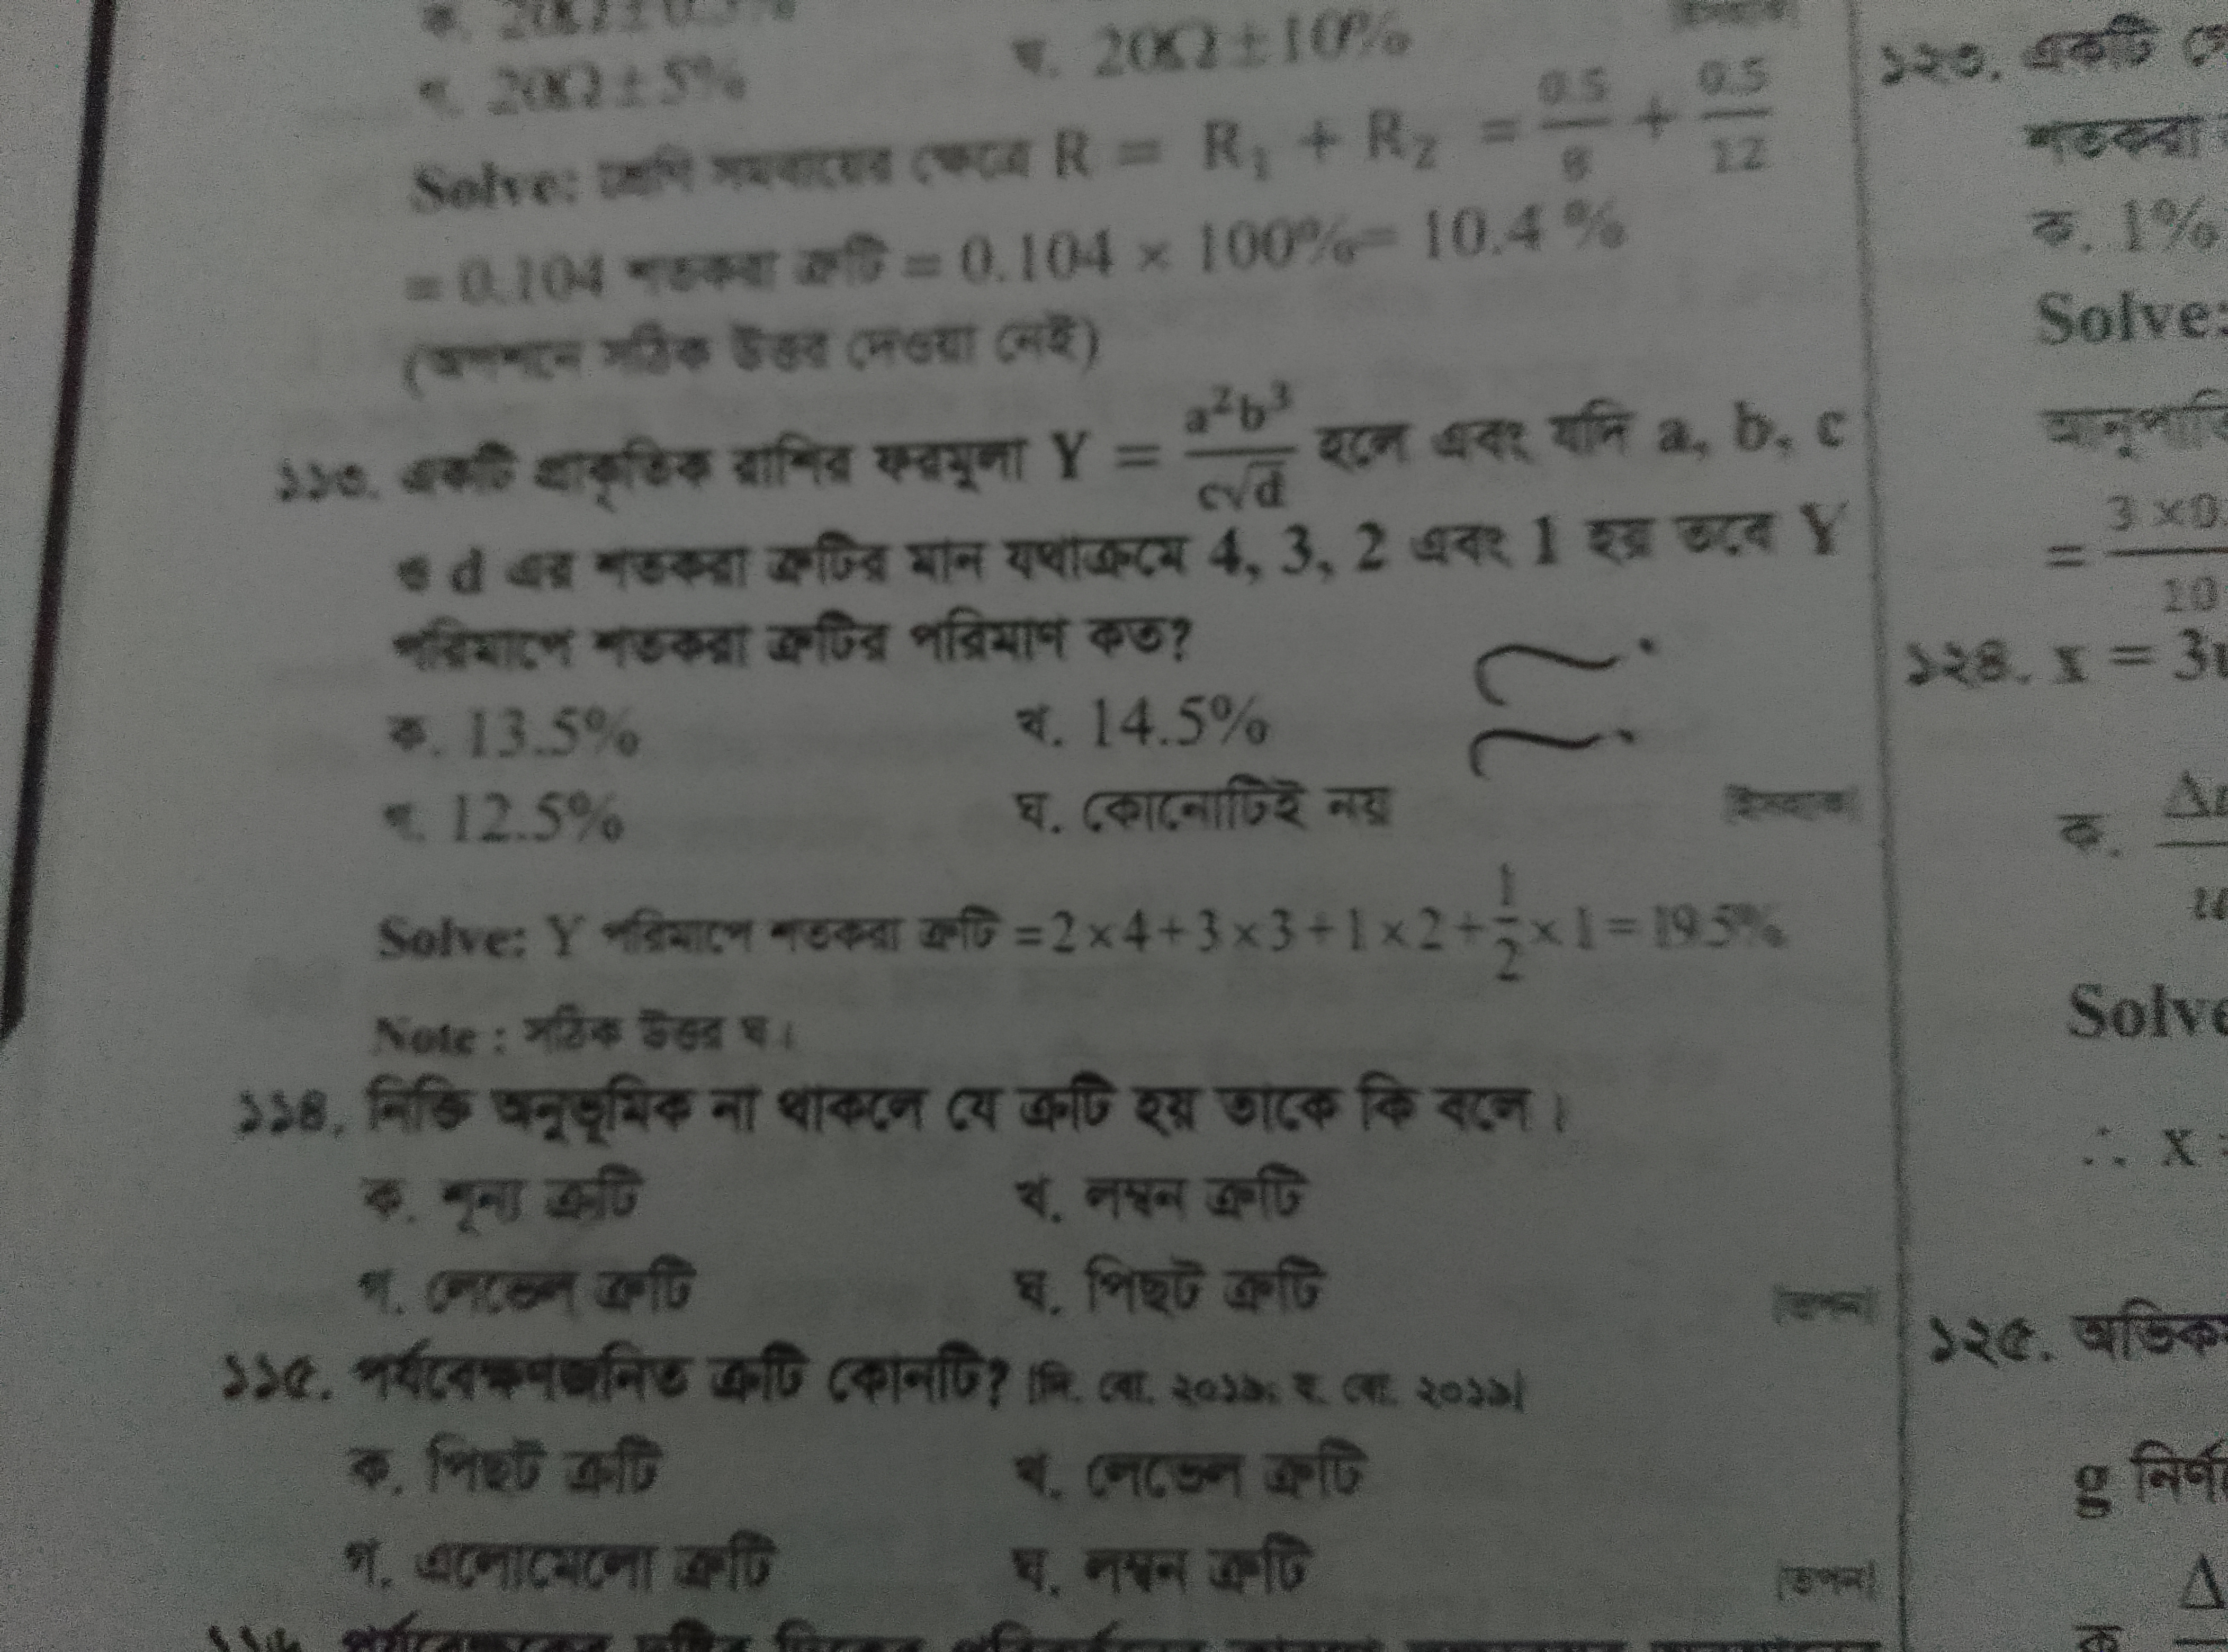 20Ω±5%
20Ω±10%
Solve: শ্রেণি সমবায়ের ক্ষেত্রে R = R₁ + R₂ = 0.5/8 + 0.5/12
= 0.104 শতকরা ত্রুটি = 0.104 × 100%= 10.4 %
(অপশনে সঠিক উত্তর দেওয়া নেই)
১১৩. একটি প্রাকৃতিক রাশির ফরমূলা Y = a²b³/c√d হলে এবং যদি a, b, c
ও d এর শতকরা ত্রুটির মান যথাক্রমে 4, 3, 2 এবং 1 হয় তবে Y
পরিমাপে শতকরা ত্রুটির পরিমাণ কত?
ক. 13.5%
খ. 14.5%
গ. 12.5%
ঘ. কোনোটিই নয়
Solve: Y পরিমাপে শতকরা ত্রুটি =2×4+3×3+1×2+1/2×1=19.5%
Note : সঠিক উত্তর ঘ।
১১৪. নিক্তি অনুভূমিক না থাকলে যে ত্রুটি হয় তাকে কি বলে।
ক. শূন্য ত্রুটি
খ. লম্বন ত্রুটি
গ. লেভেল ত্রুটি
ঘ. পিছট ত্রুটি
[তপন]
১১৫. পর্যবেক্ষণজনিত ত্রুটি কোনটি?
ক. পিছট ত্রুটি
খ. লেভেল ত্রুটি
গ. এলোমেলো ত্রুটি
ঘ. লম্বন ত্রুটি
[তপন]
১২৩. একটি
শতকরা
ক. 1%
Solve:
= 3 ×0. / 10
১২৪. x = 3
ক.
Solve
∴ x
১২৫.
g
Δ